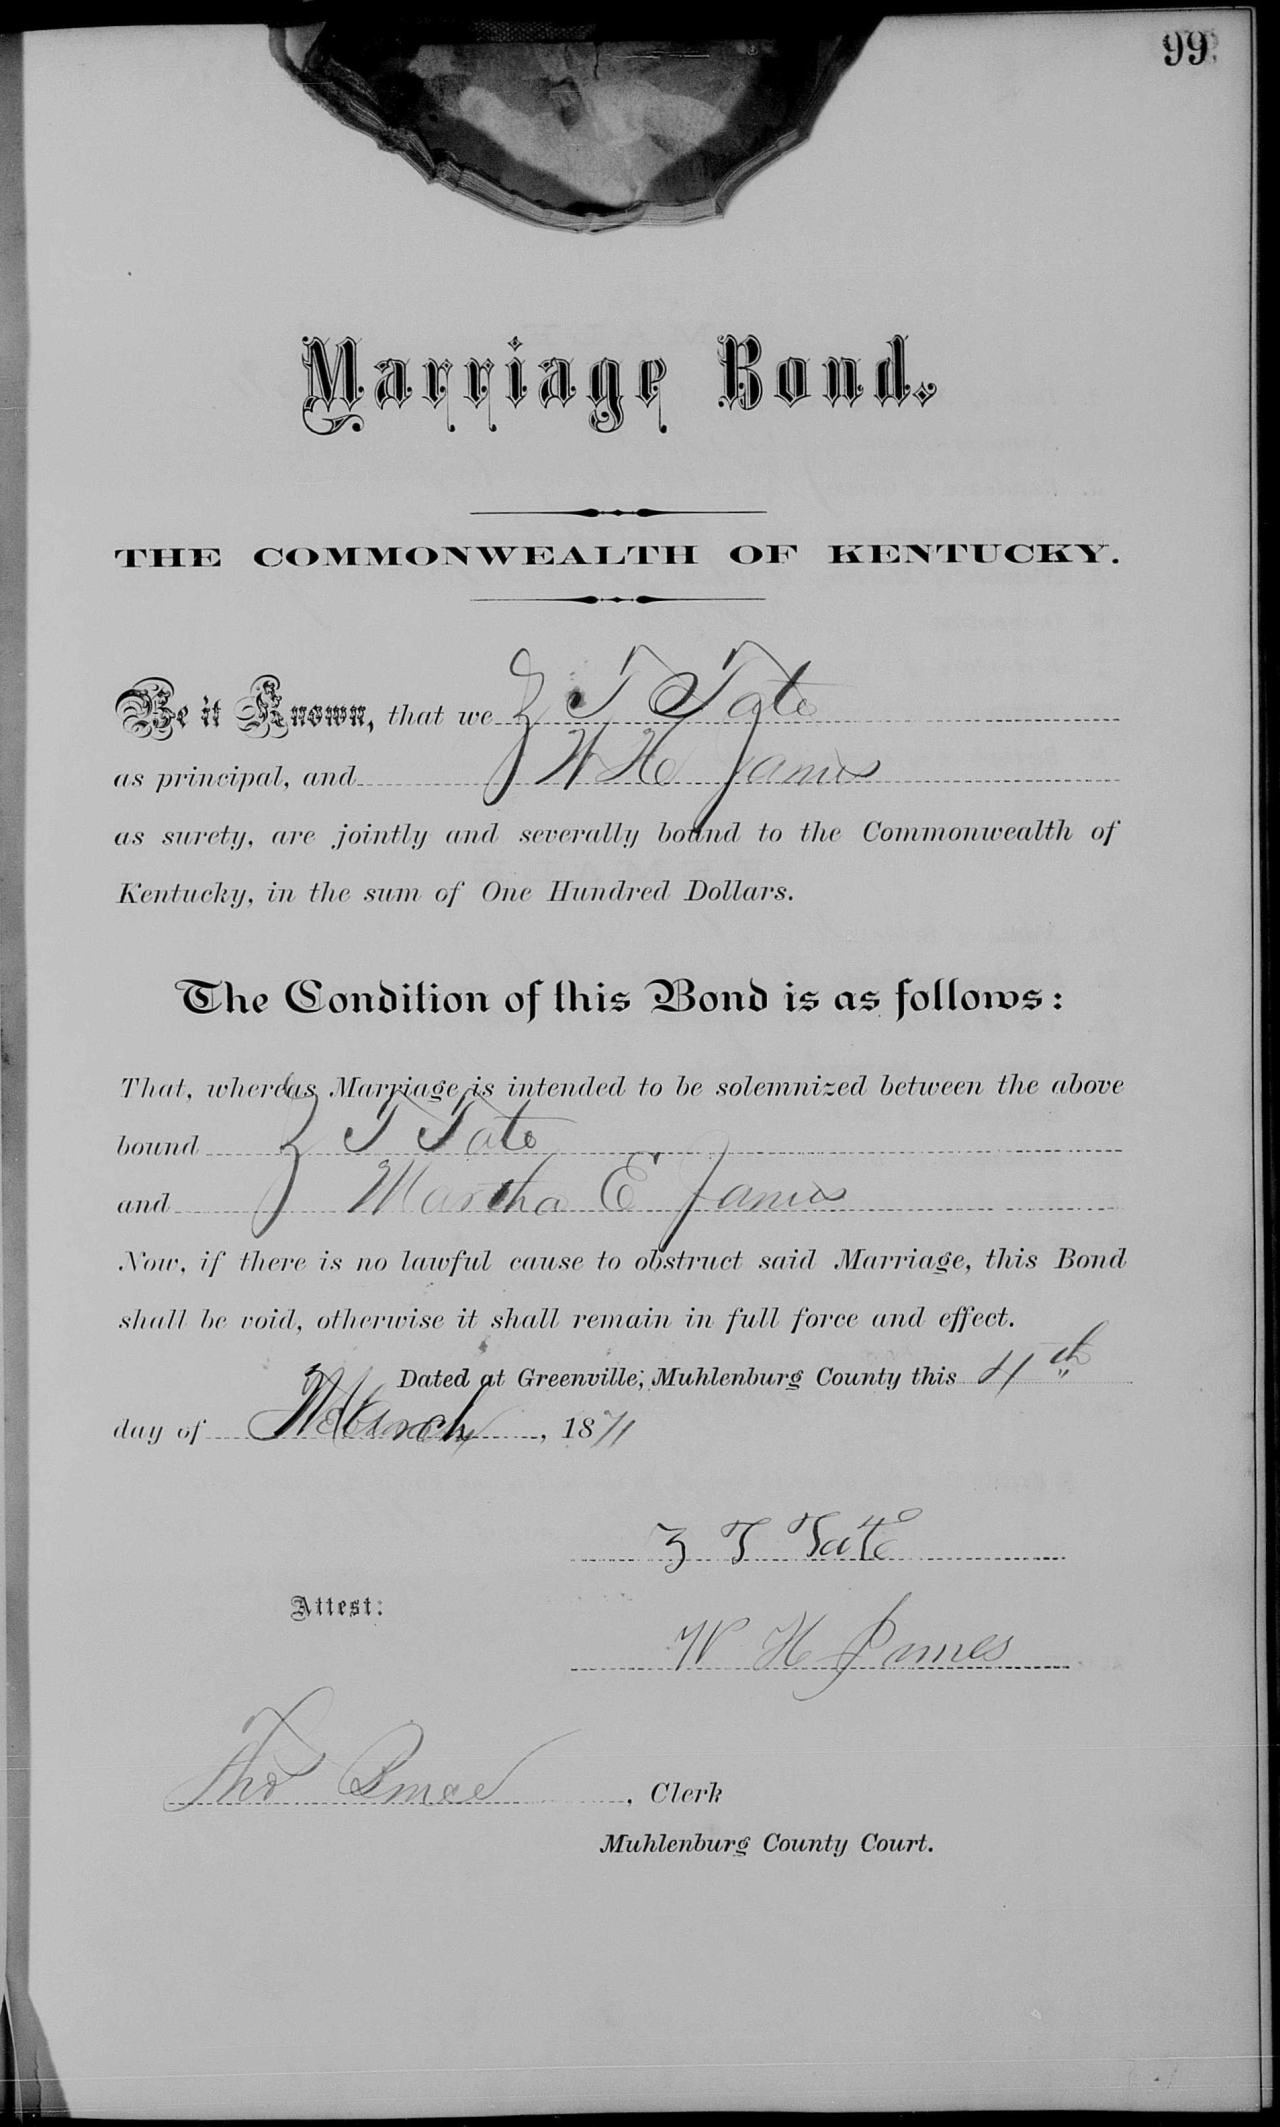 99
Marriage Bond.
THE COMMONWEALTH OF KENTUCKY.
Be it Known, that we Z T Tate
as principal, and W H James
as surety, are jointly and severally bound to the Commonwealth of
Kentucky, in the sum of One Hundred Dollars.
The Condition of this Bond is as follows:
That, whereas Marriage is intended to be solemnized between the above
bound Z T Tate
and Martha E James
Now, if there is no lawful cause to obstruct said Marriage, this Bond
shall be void, otherwise it shall remain in full force and effect.
Dated at Greenville, Muhlenburg County this 4th
day of March, 1871
Z T Tate
Attest:
W H James
Tho Bruce, Clerk
Muhlenburg County Court.